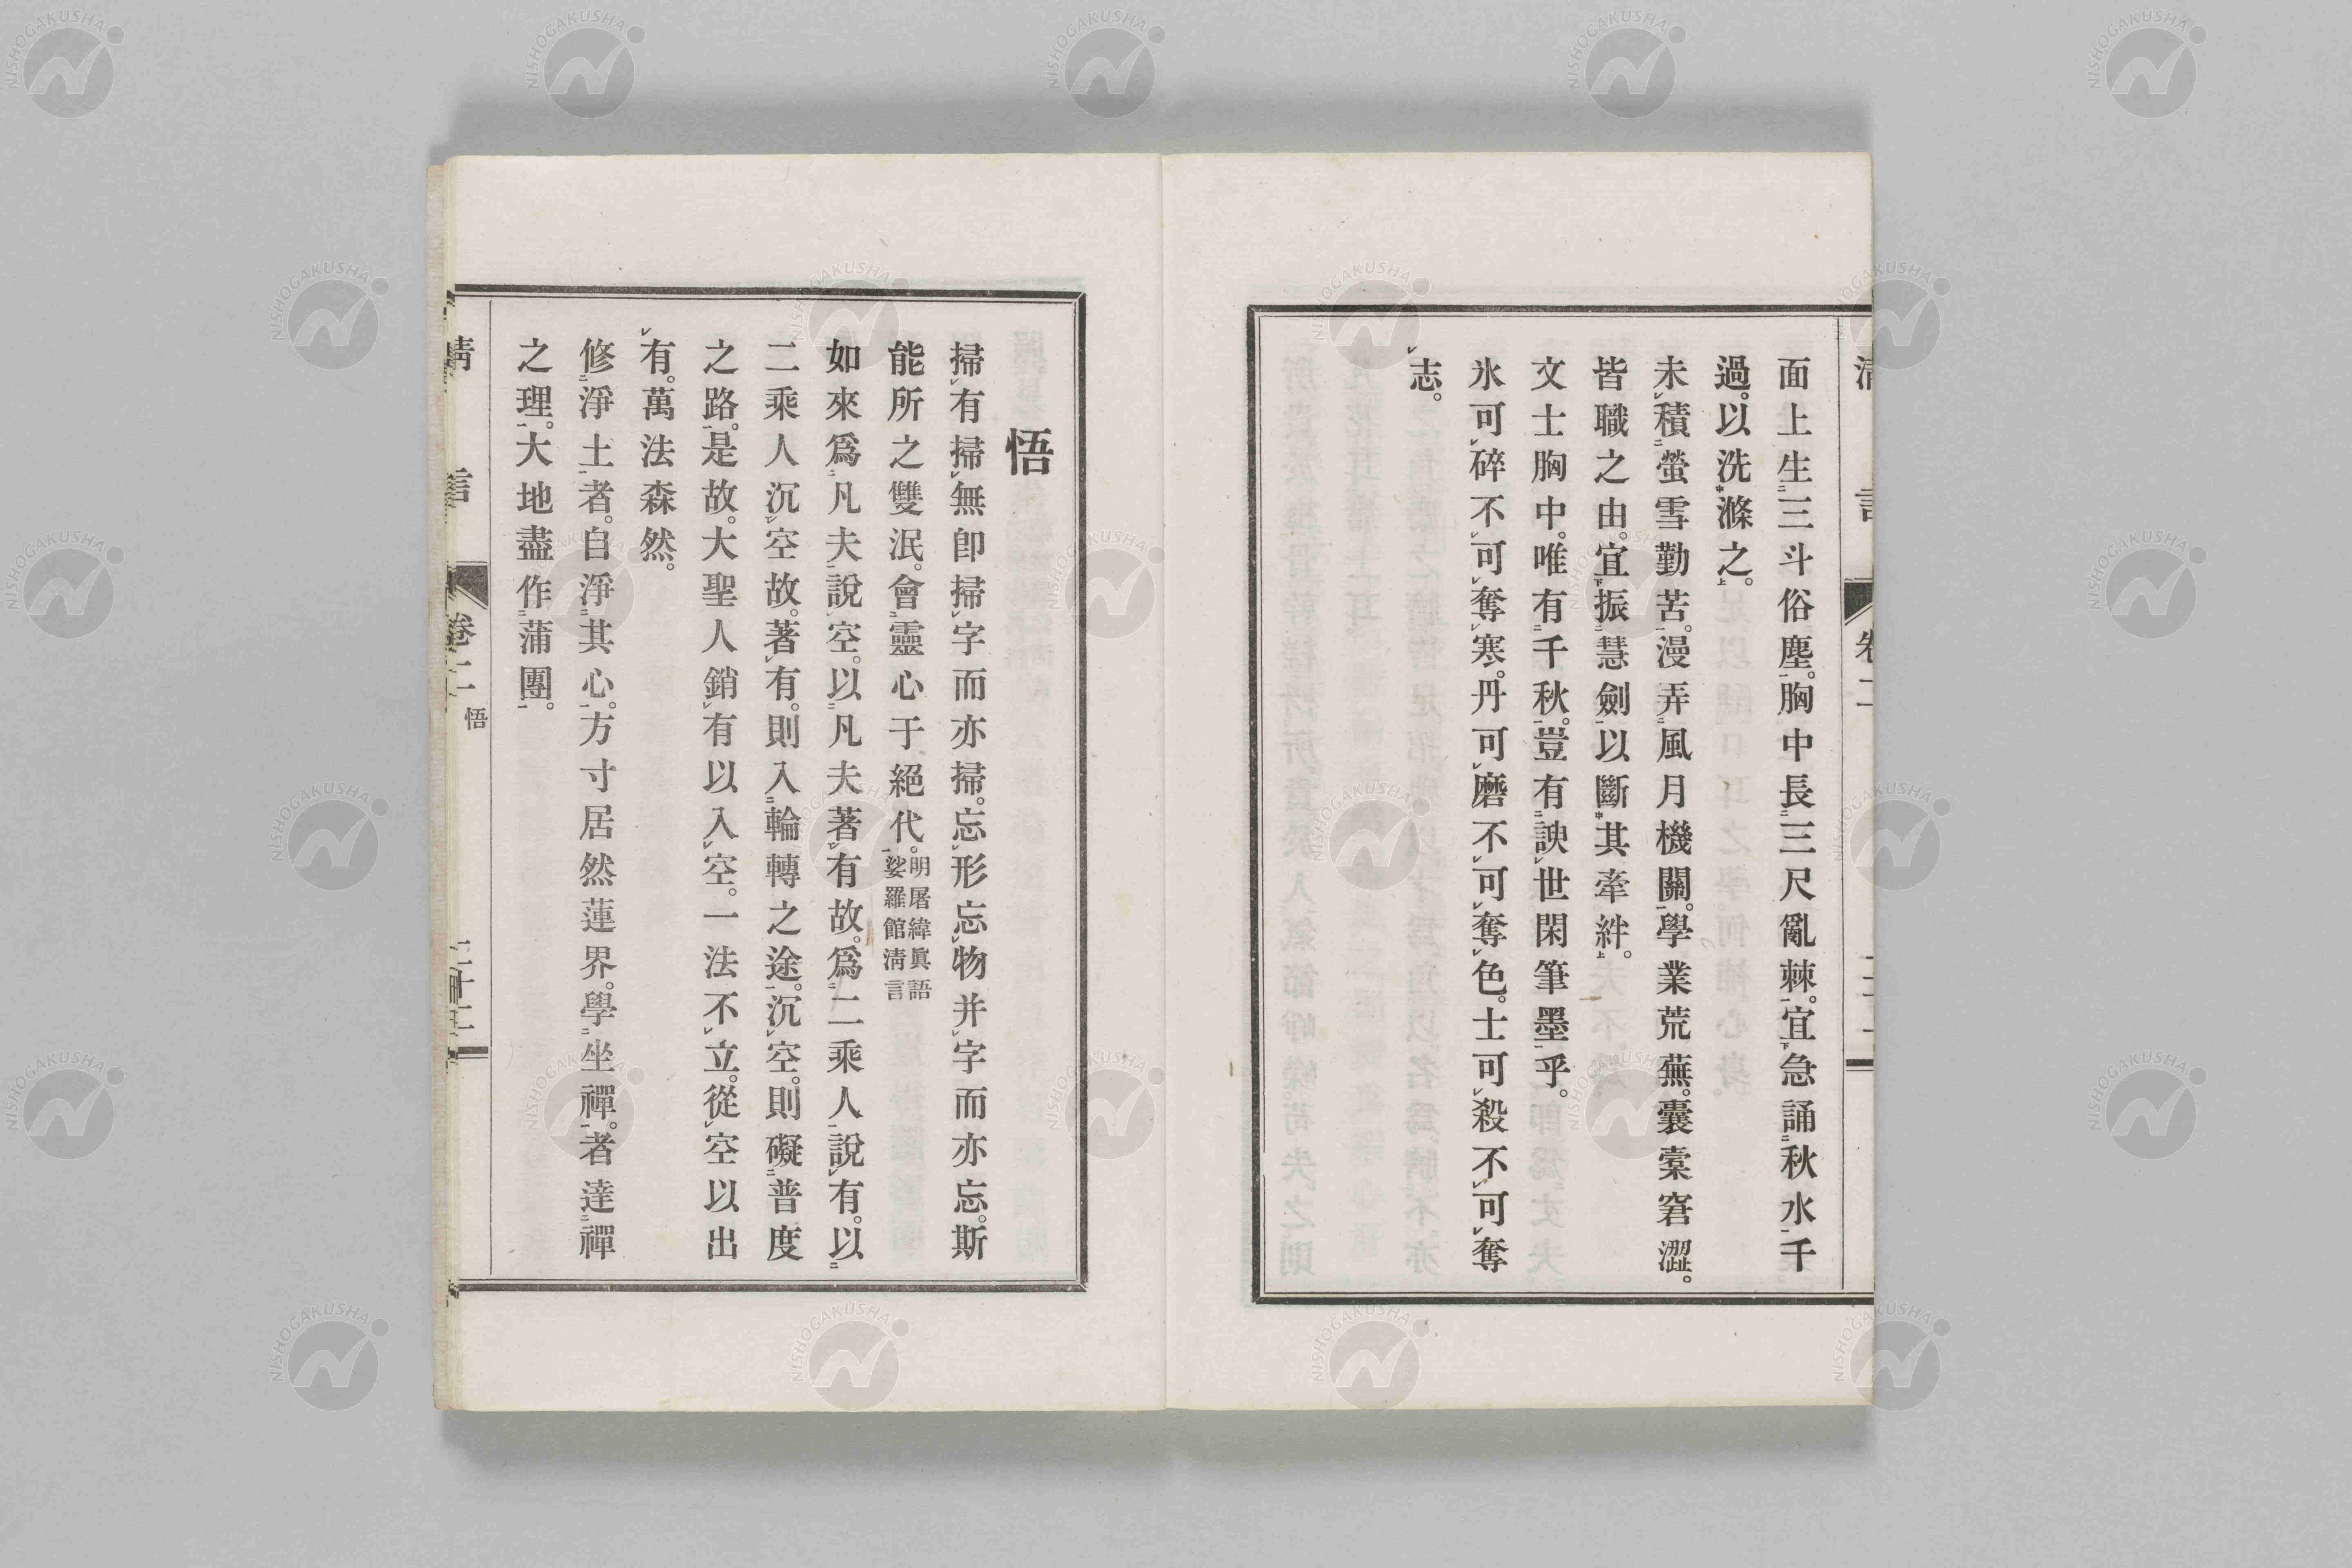 面上生三斗俗塵。胸中長三尺亂棘。宜急誦秋水千
過。以洗滌之。
未積螢雪勤苦。漫弄風月機關。學業荒蕪。囊橐窘澀。
皆職之由。宜振慧劍以斷其牽絆。
文士胸中。唯有千秋。豈有諛世閑筆墨乎。
氷可碎不可奪寒。丹可磨不可奪色。士可殺不可奪
志。
悟
掃有掃無卽掃字而亦掃。忘形忘物并字而亦忘。斯
能所之雙泯。會靈心于絕代。明屠緯眞語娑羅館淸言
如來爲凡夫說空。以凡夫著有故。爲二乘人說有。以
二乘人沉空故。著有。則入輪轉之途。沉空。則礙普度
之路。是故。大聖人銷有以入空。一法不立。從空以出
有。萬法森然。
修淨土者。自淨其心。方寸居然蓮界。學坐禪。者達禪
之理。大地盡作蒲團。
卷二 悟
NISHOGAKUSHA